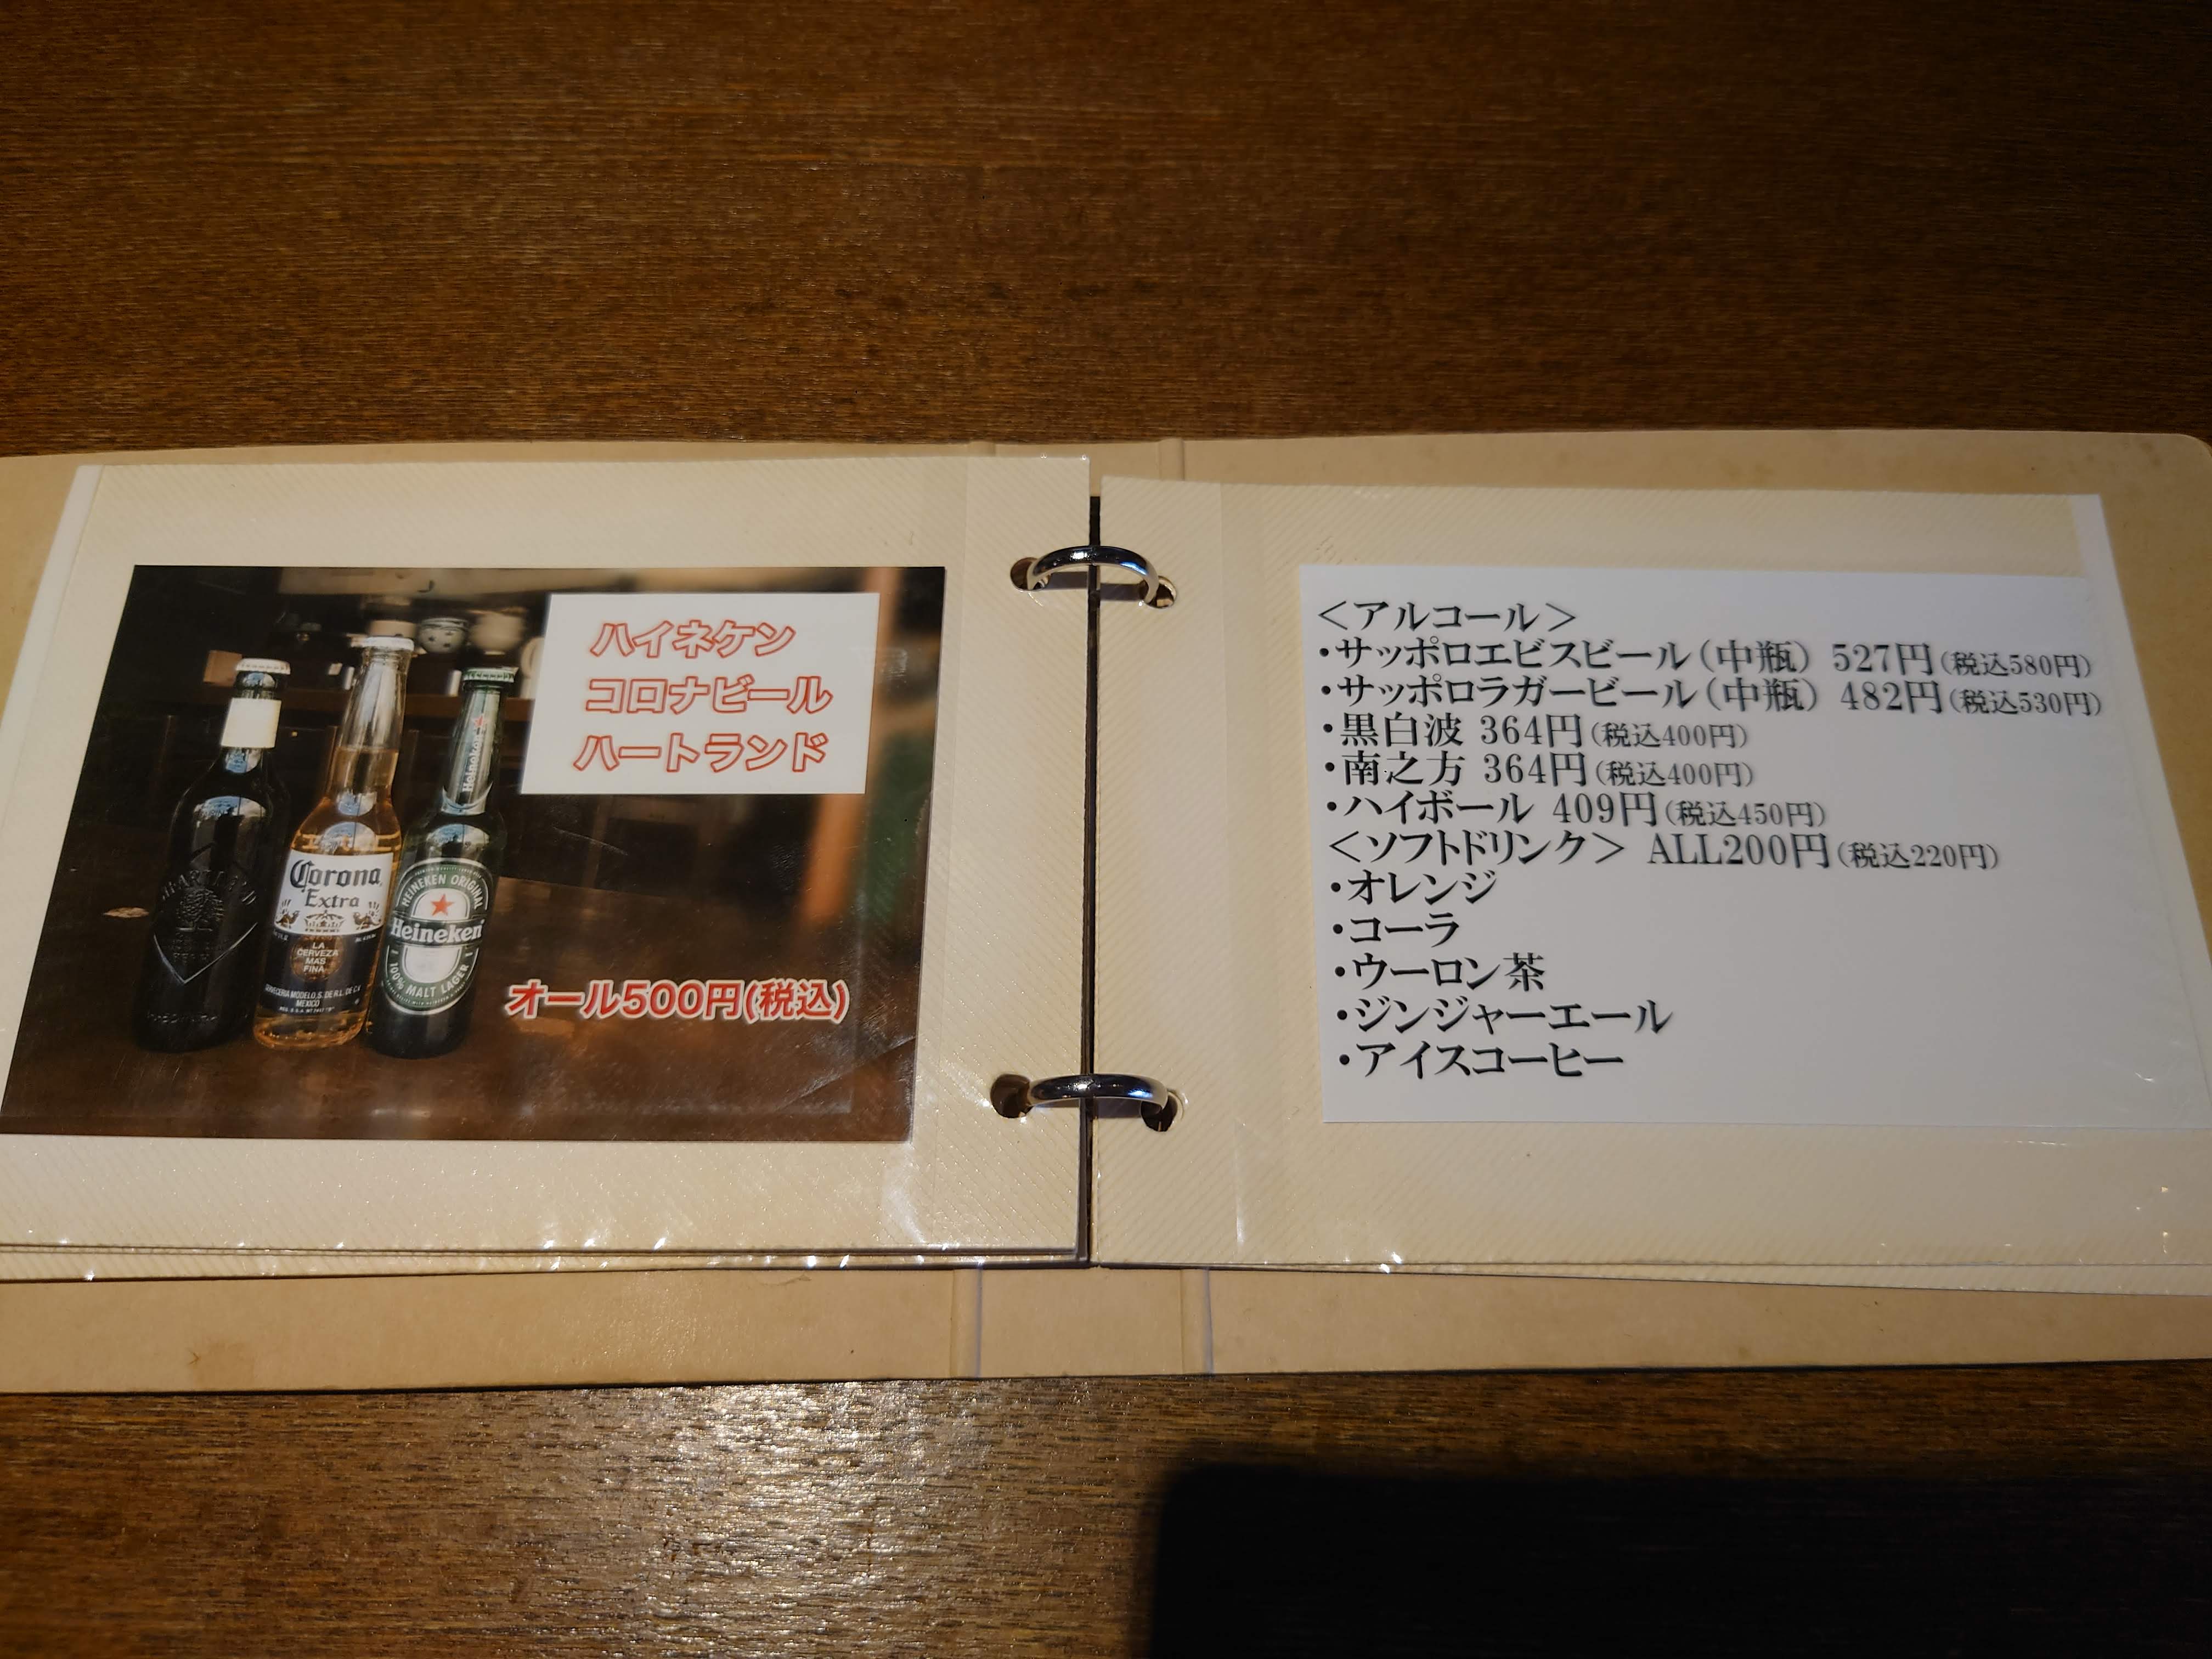 ハイネケン
コロナビール
ハートランド
Corona
Extra
LA
CERVEZA
MAS
FINA
MEXICO
Heineken
HEINEKEN ORIGINAL
Heineken
100% MALT LAGER
オール500円(税込)
＜アルコール＞
・サッポロエビスビール（中瓶） 527円(税込580円)
・サッポロラガービール（中瓶） 482円(税込530円)
・黒白波 364円(税込400円)
・南之方 364円(税込400円)
・ハイボール 409円(税込450円)
＜ソフトドリンク＞ ALL200円(税込220円)
・オレンジ
・コーラ
・ウーロン茶
・ジンジャーエール
・アイスコーヒー